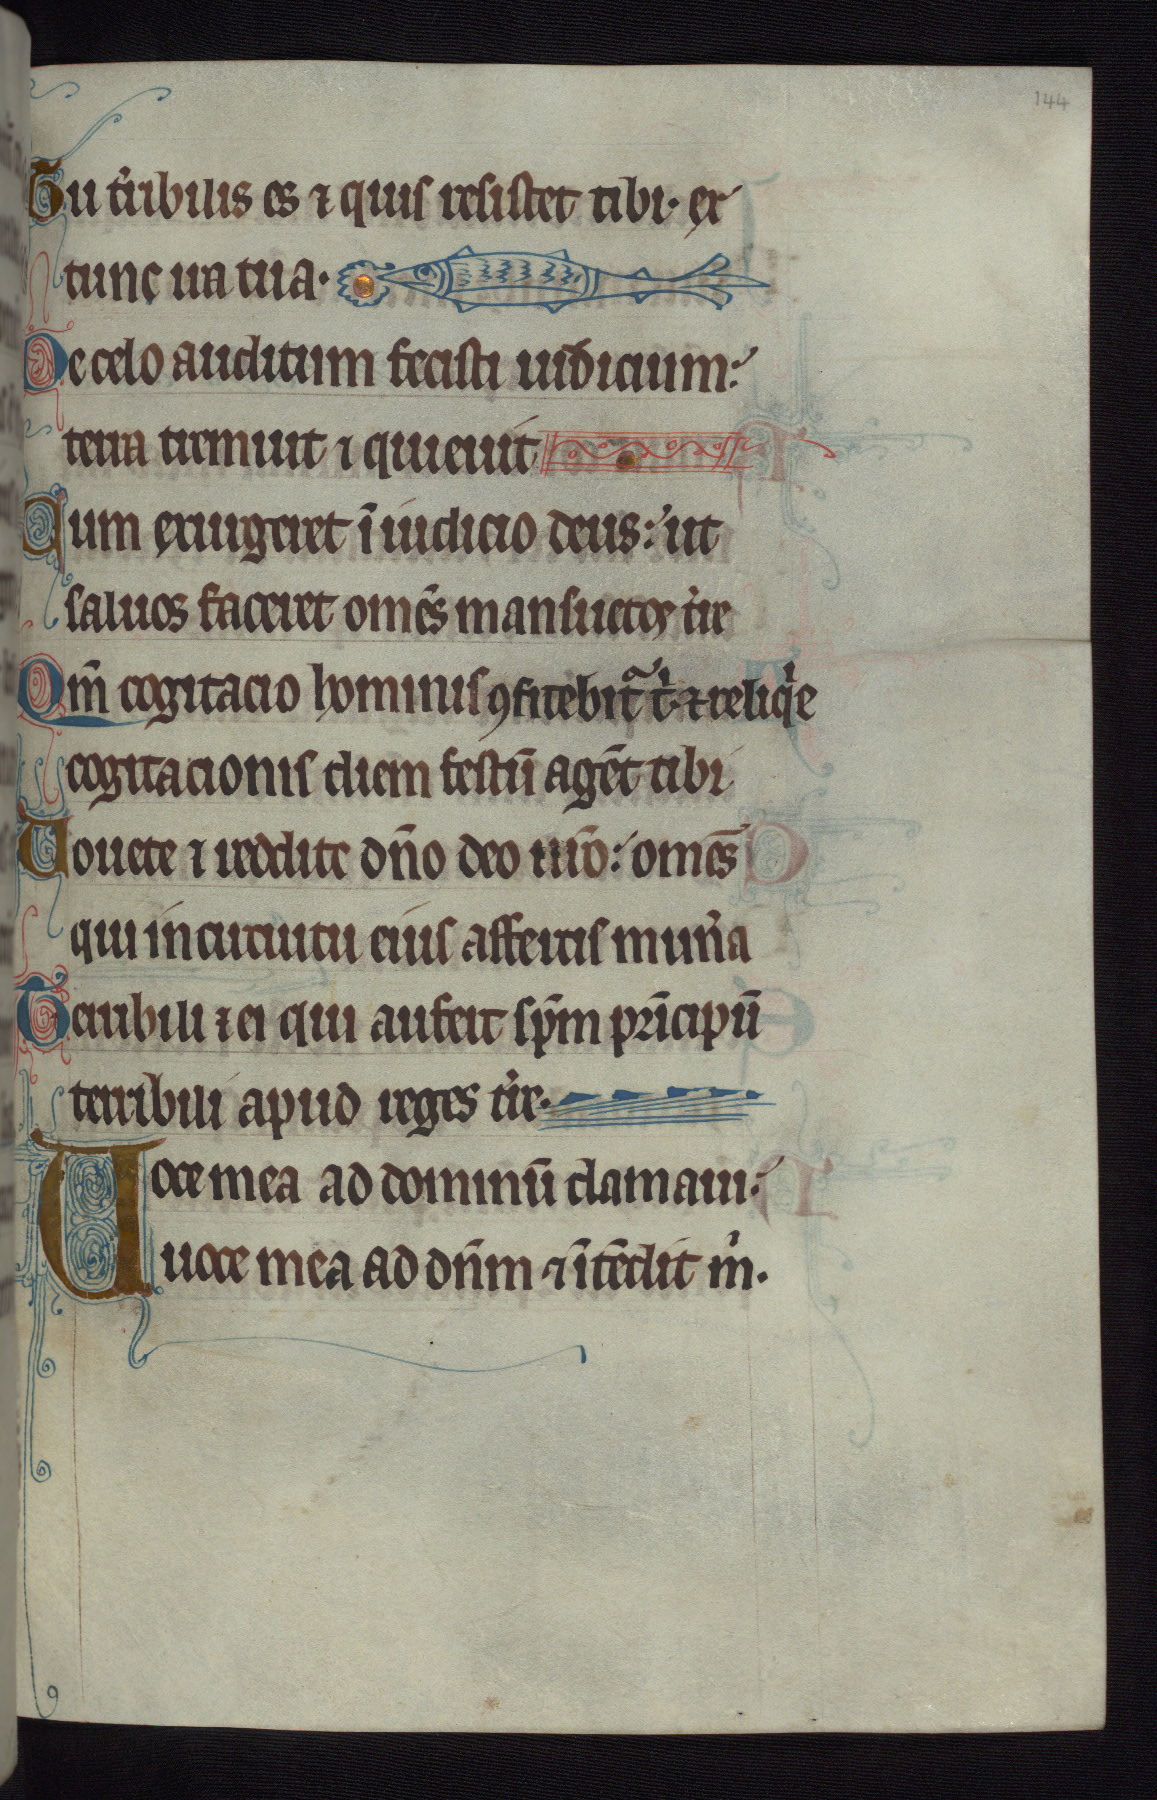 144
Tu t̾ribilis es ⁊ quis resistet tibi· ex
tunc ira tua·
De celo auditum fecisti iudicium:
terra tremuit ⁊ quieuit
Cum exurgeret ī iudicio deus: ut
saluos faceret om̄es mansuetos t̾re
Qm̄ cogitacio hominis ꝯfitebit᷑ t̾· ⁊ reliq̾e
cogitacionis diem festū agēt tibi
Uouete ⁊ reddite dn̄o deo nr̄o: om̄es
qui in circuitu eius affertis mun̾a
Terribili ⁊ ei qui aufert sp̄m prīcipū
terribili apud reges t̾re·
Uoce mea ad dominū clamaui:
uoce mea ad dn̄m ⁊ ītēdit m̾·